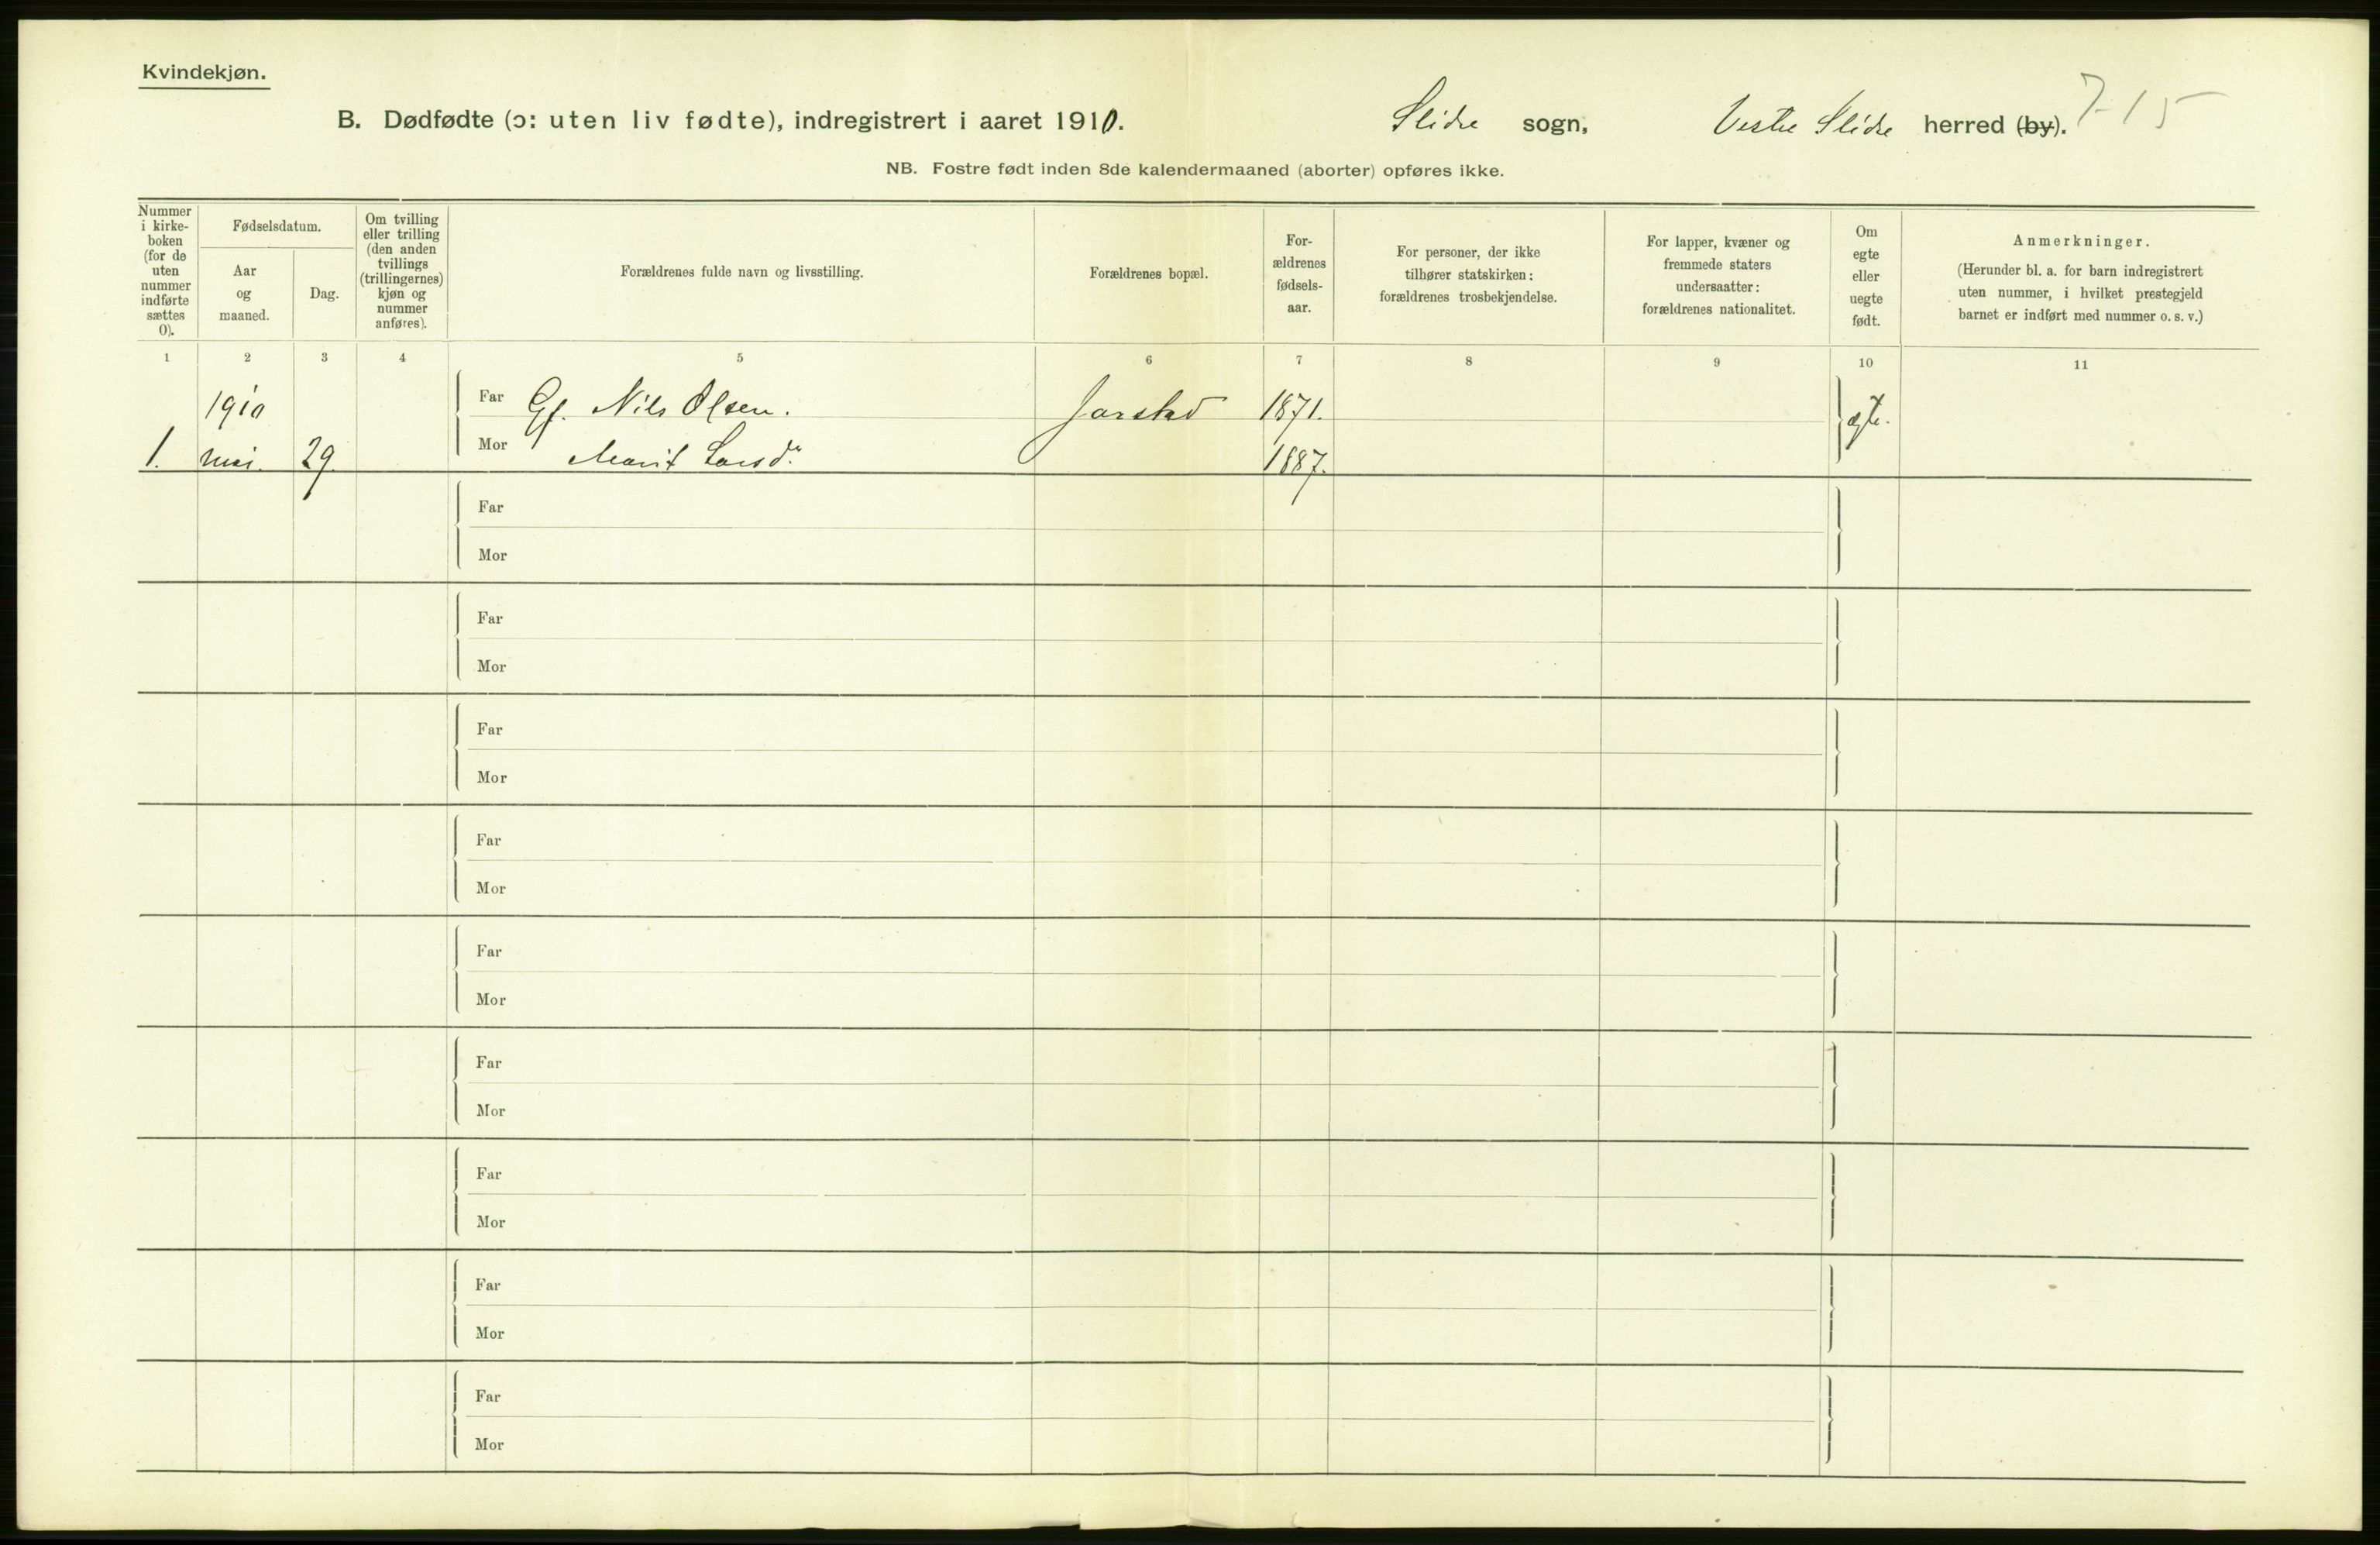 Kvindekjøn.
B. Dødfødte (ɔ: uten liv fødte), indregistrert i aaret 1910. Slidre sogn, Vestre Slidre herred (by). 7-15
NB. Fostre født inden 8de kalendermaaned (aborter) opføres ikke.
Nummer i kirke-boken (for de uten nummer indførte sættes 0).
Fødselsdatum.
Aar og maaned.
Dag.
Om tvilling eller trilling (den anden tvillings (trillingernes) kjøn og nummer anføres).
Forældrenes fulde navn og livsstilling.
Forældrenes bopæl.
For-ældrenes fødsels-aar.
For personer, der ikke tilhører statskirken: forældrenes trosbekjendelse.
For lapper, kvæner og fremmede staters undersaatter: forældrenes nationalitet.
Om egte eller uegte født.
Anmerkninger.
(Herunder bl. a. for barn indregistrert uten nummer, i hvilket prestegjeld barnet er indført med nummer o. s. v.)
1 2 3 4 5 6 7 8 9 10 11
1910 Far Gf. Nils Olsen. Jarstad 1871. ægte.
1. mai. 29. Mor Marit Larsdr. 1887.
Far
Mor
Far
Mor
Far
Mor
Far
Mor
Far
Mor
Far
Mor
Far
Mor
Far
Mor
Far
Mor